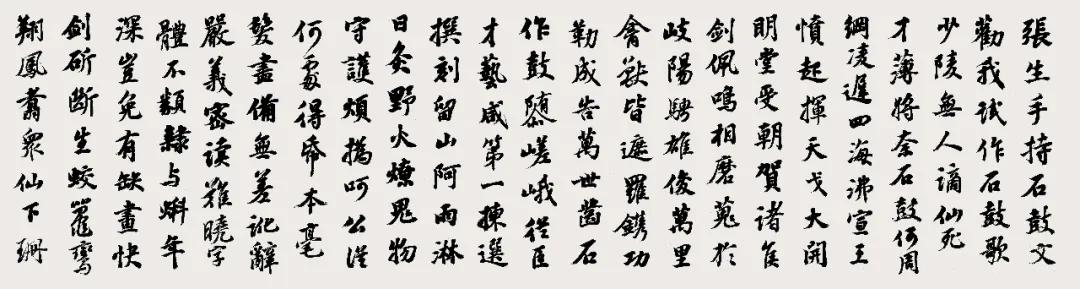 張生手持石鼓文
勸我試作石鼓歌
少陵無人謫仙死
才薄將奈石鼓何周
綱凌遲四海沸宣王
憤起揮天戈大開
明堂受朝賀諸侯
劍佩鳴相磨蒐於
岐陽騁雄俊萬里
禽獸皆遮羅鐫功
勒成告萬世鑿石
作鼓隳嵯峨從臣
才藝咸第一揀選
撰刻留山阿雨淋
日炙野火燎鬼物
守護煩撝呵公從
何處得帋本毫
髮盡備無差訛辭
嚴義密读難曉字
體不類隸与蝌年
深豈免有缺畫快
劍斫斷生蛟鼉鸞
翔鳳翥眾仙下珊